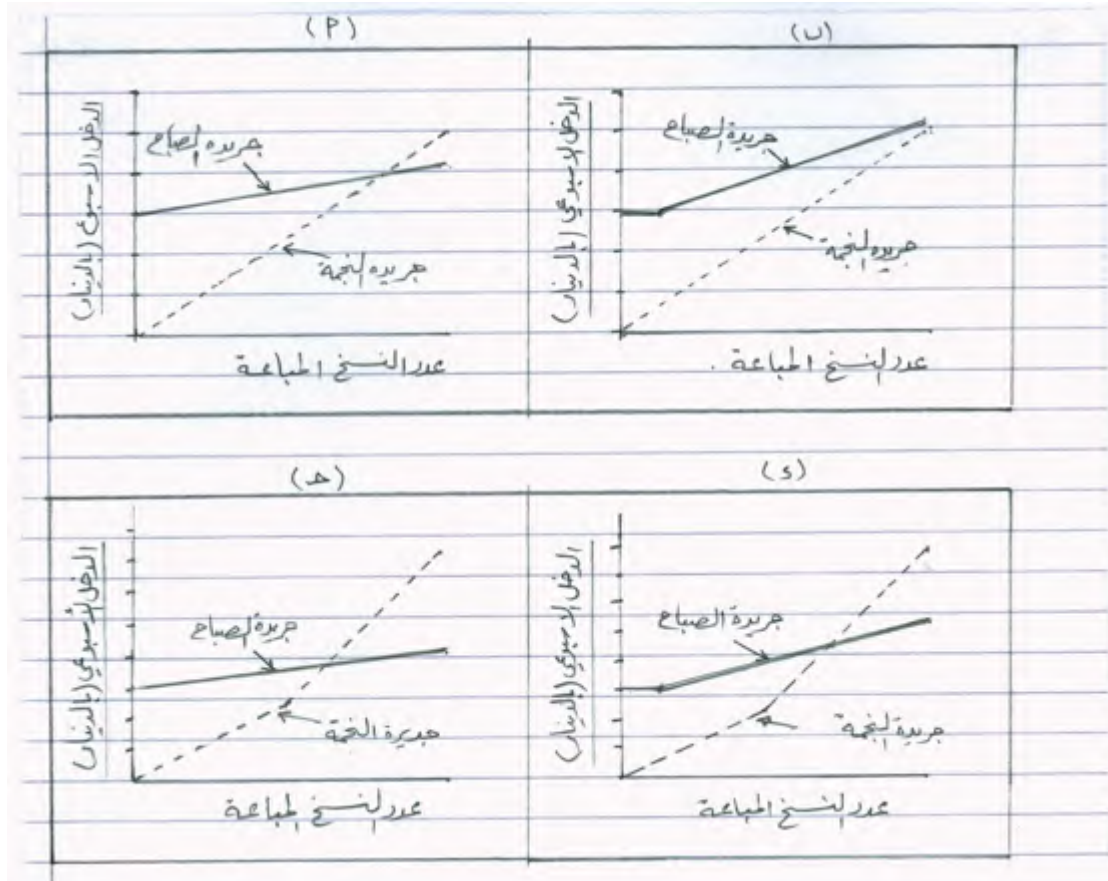 (أ)
الدخل الاسبوعي (بالدينار)
جريده الصباح
جريده النجمة
عدد النسخ المباعة
(ب)
الدخل الاسبوعي (بالدينار)
جريدة الصباح
جريده النجمة
عدد النسخ المباعة .
(حـ)
الدخل الأسبوعي (بالدينار)
جريدة الصباح
جديرة النجمة
عدد النسخ المباعة
(د)
الدخل الاسبوعي (بالدينار)
جريدة الصباح
جريدة النجمة
عدد النسخ المباعة